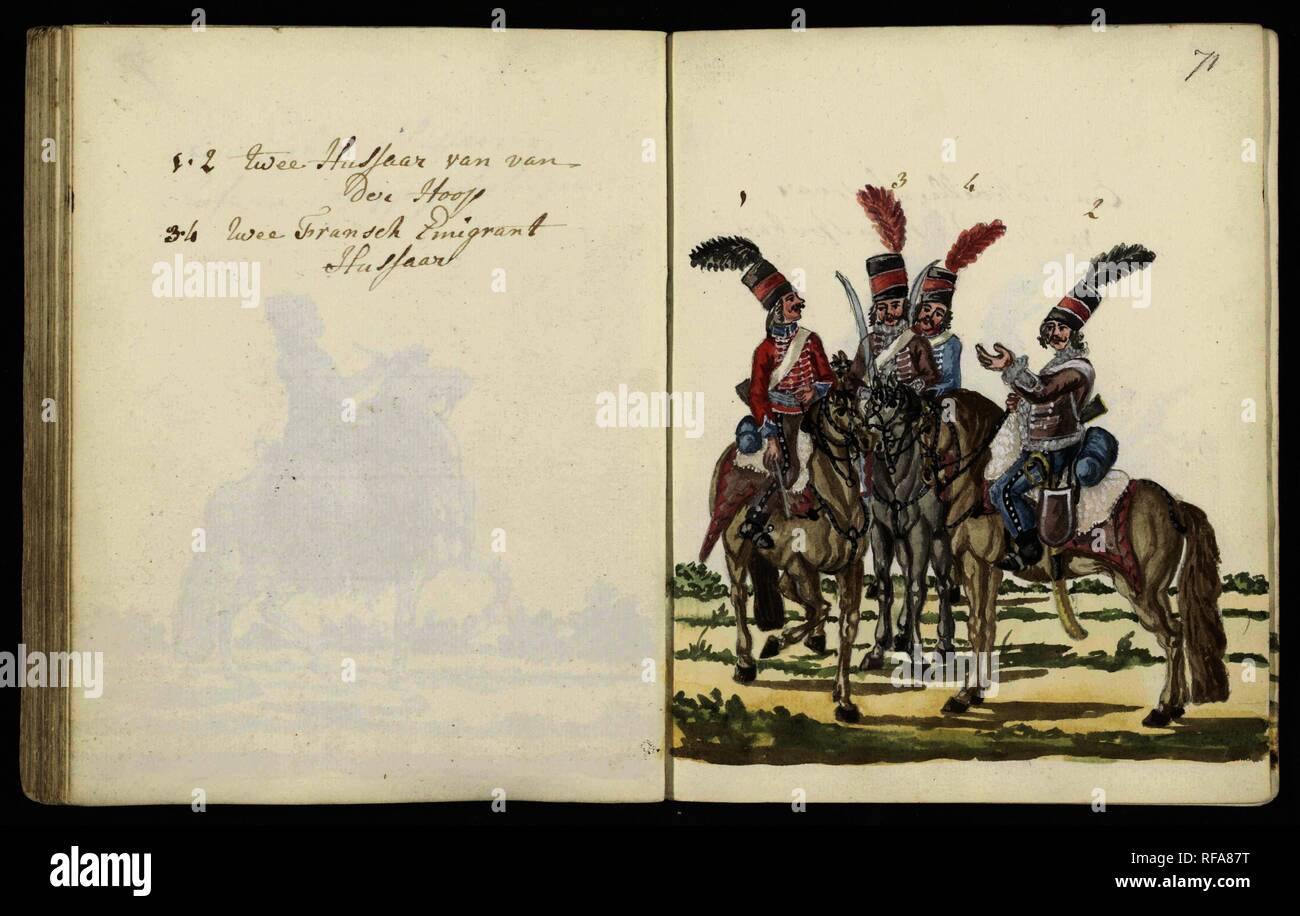 1.2 twee Hussaar van van
der Hoop
3.4 twee Fransch Emigrant
Hussaar
71
1
3
4
2
alamy
alamy
Image ID: RFA87T
www.alamy.com